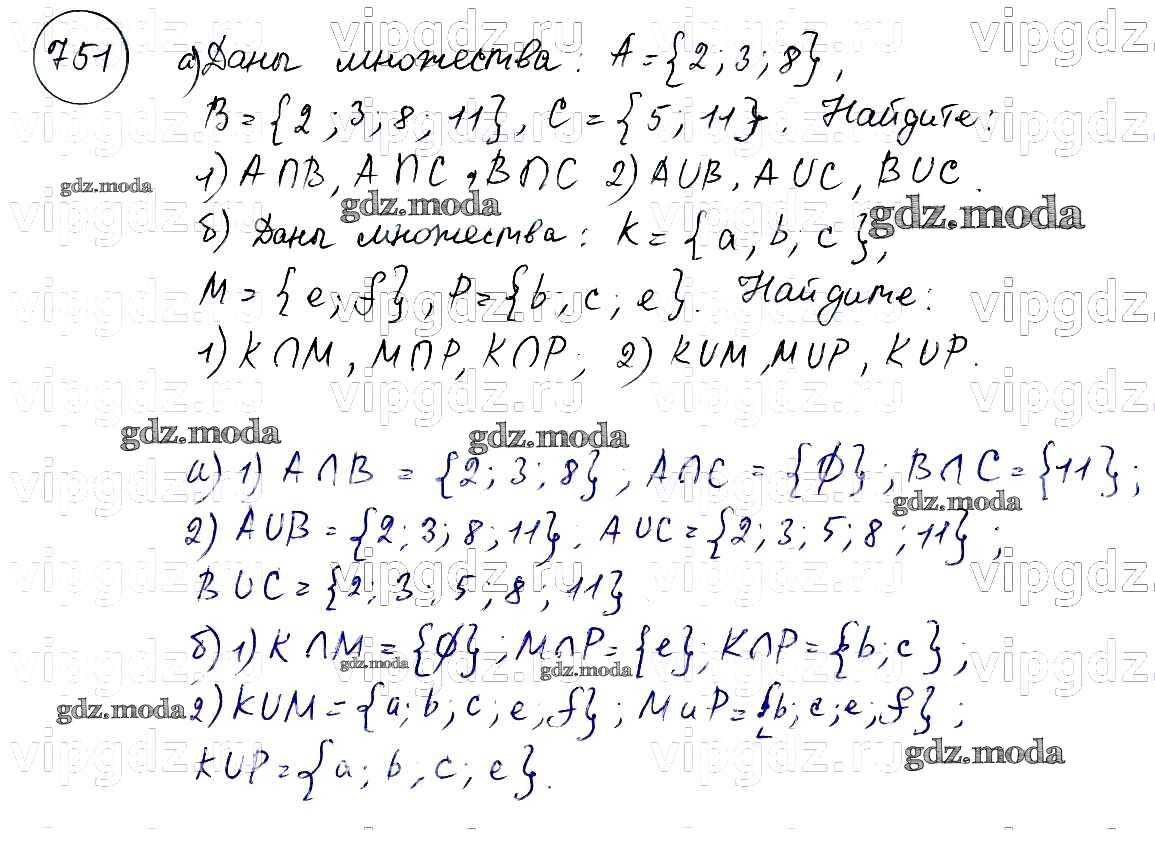 751 а) Даны множества: A = {2; 3; 8},
B = {2; 3; 8; 11}, C = {5; 11}. Найдите:
1) A∩B, A∩C, B∩C 2) A∪B, A∪C, B∪C.
б) Даны множества: K = {a, b, c},
M = {e; f}, P = {b; c; e}. Найдите:
1) K∩M, M∩P, K∩P; 2) K∪M, M∪P, K∪P.
а) 1) A∩B = {2; 3; 8}; A∩C = {∅}; B∩C = {11};
2) A∪B = {2; 3; 8; 11}; A∪C = {2; 3; 5; 8; 11};
B∪C = {2; 3; 5; 8, 11}
б) 1) K∩M = {∅}; M∩P = {e}; K∩P = {b; c};
2) K∪M = {a; b; c; e; f}; M∪P = {b; c; e; f};
K∪P = {a; b; c; e}.
vipgdz.ru
gdz.moda